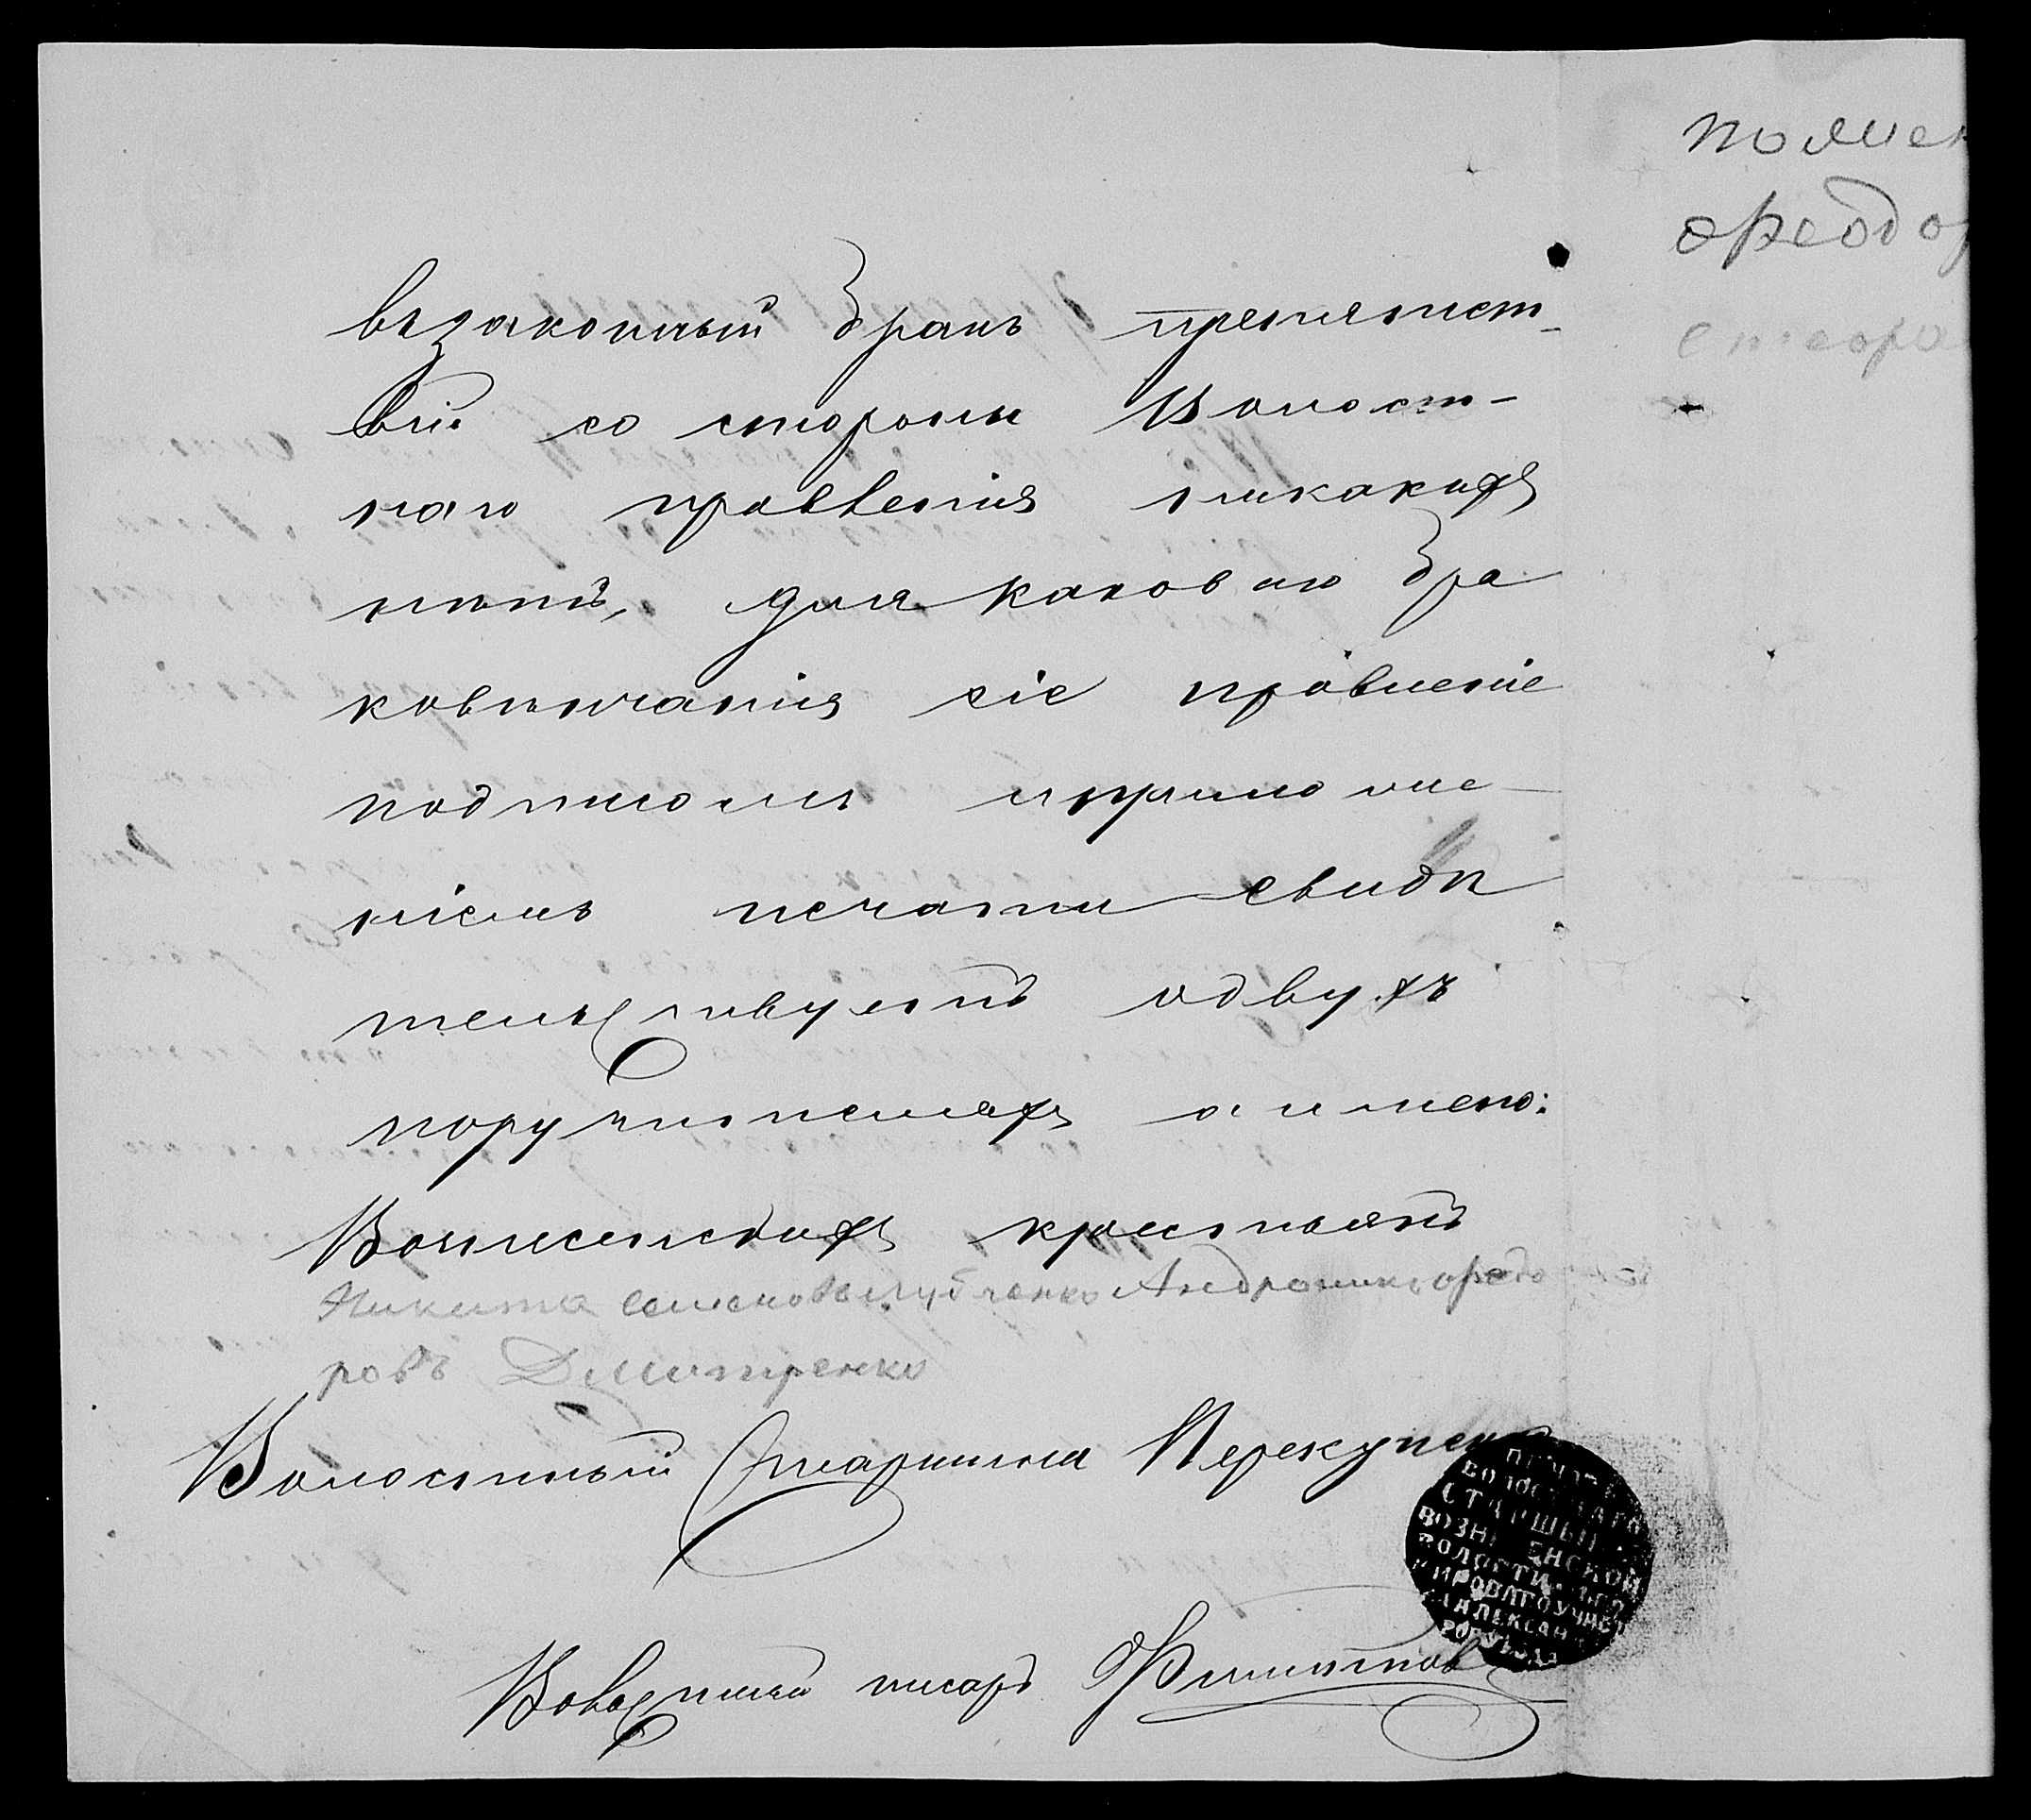 възаконный бракъ препятст-
вій со стороны Волост-
наго правленія никакихъ
нѣтъ, для каковаго бра
ковѣнчанія сіе правленіе
подписомъ иприложе-
ніемъ печати свидѣ
тельствуетъ одвухъ
поручителяхъ аимено:
Вознесенскихъ крестьянъ
Никита Семеновъ Андроникъ Федо
ровъ Дмитренко
Волостный Старшина
ПЕЧАТЬ
ВОЛОСТНАГО
СТАРШИНЫ
ВОЗНЕСЕНСКОЙ
ВОЛОСТИ
МИРОВАГО УЧАС
АЛЕКСАН
РОВ УѢЗДА
Волостный писарь Филиповъ
Феодор